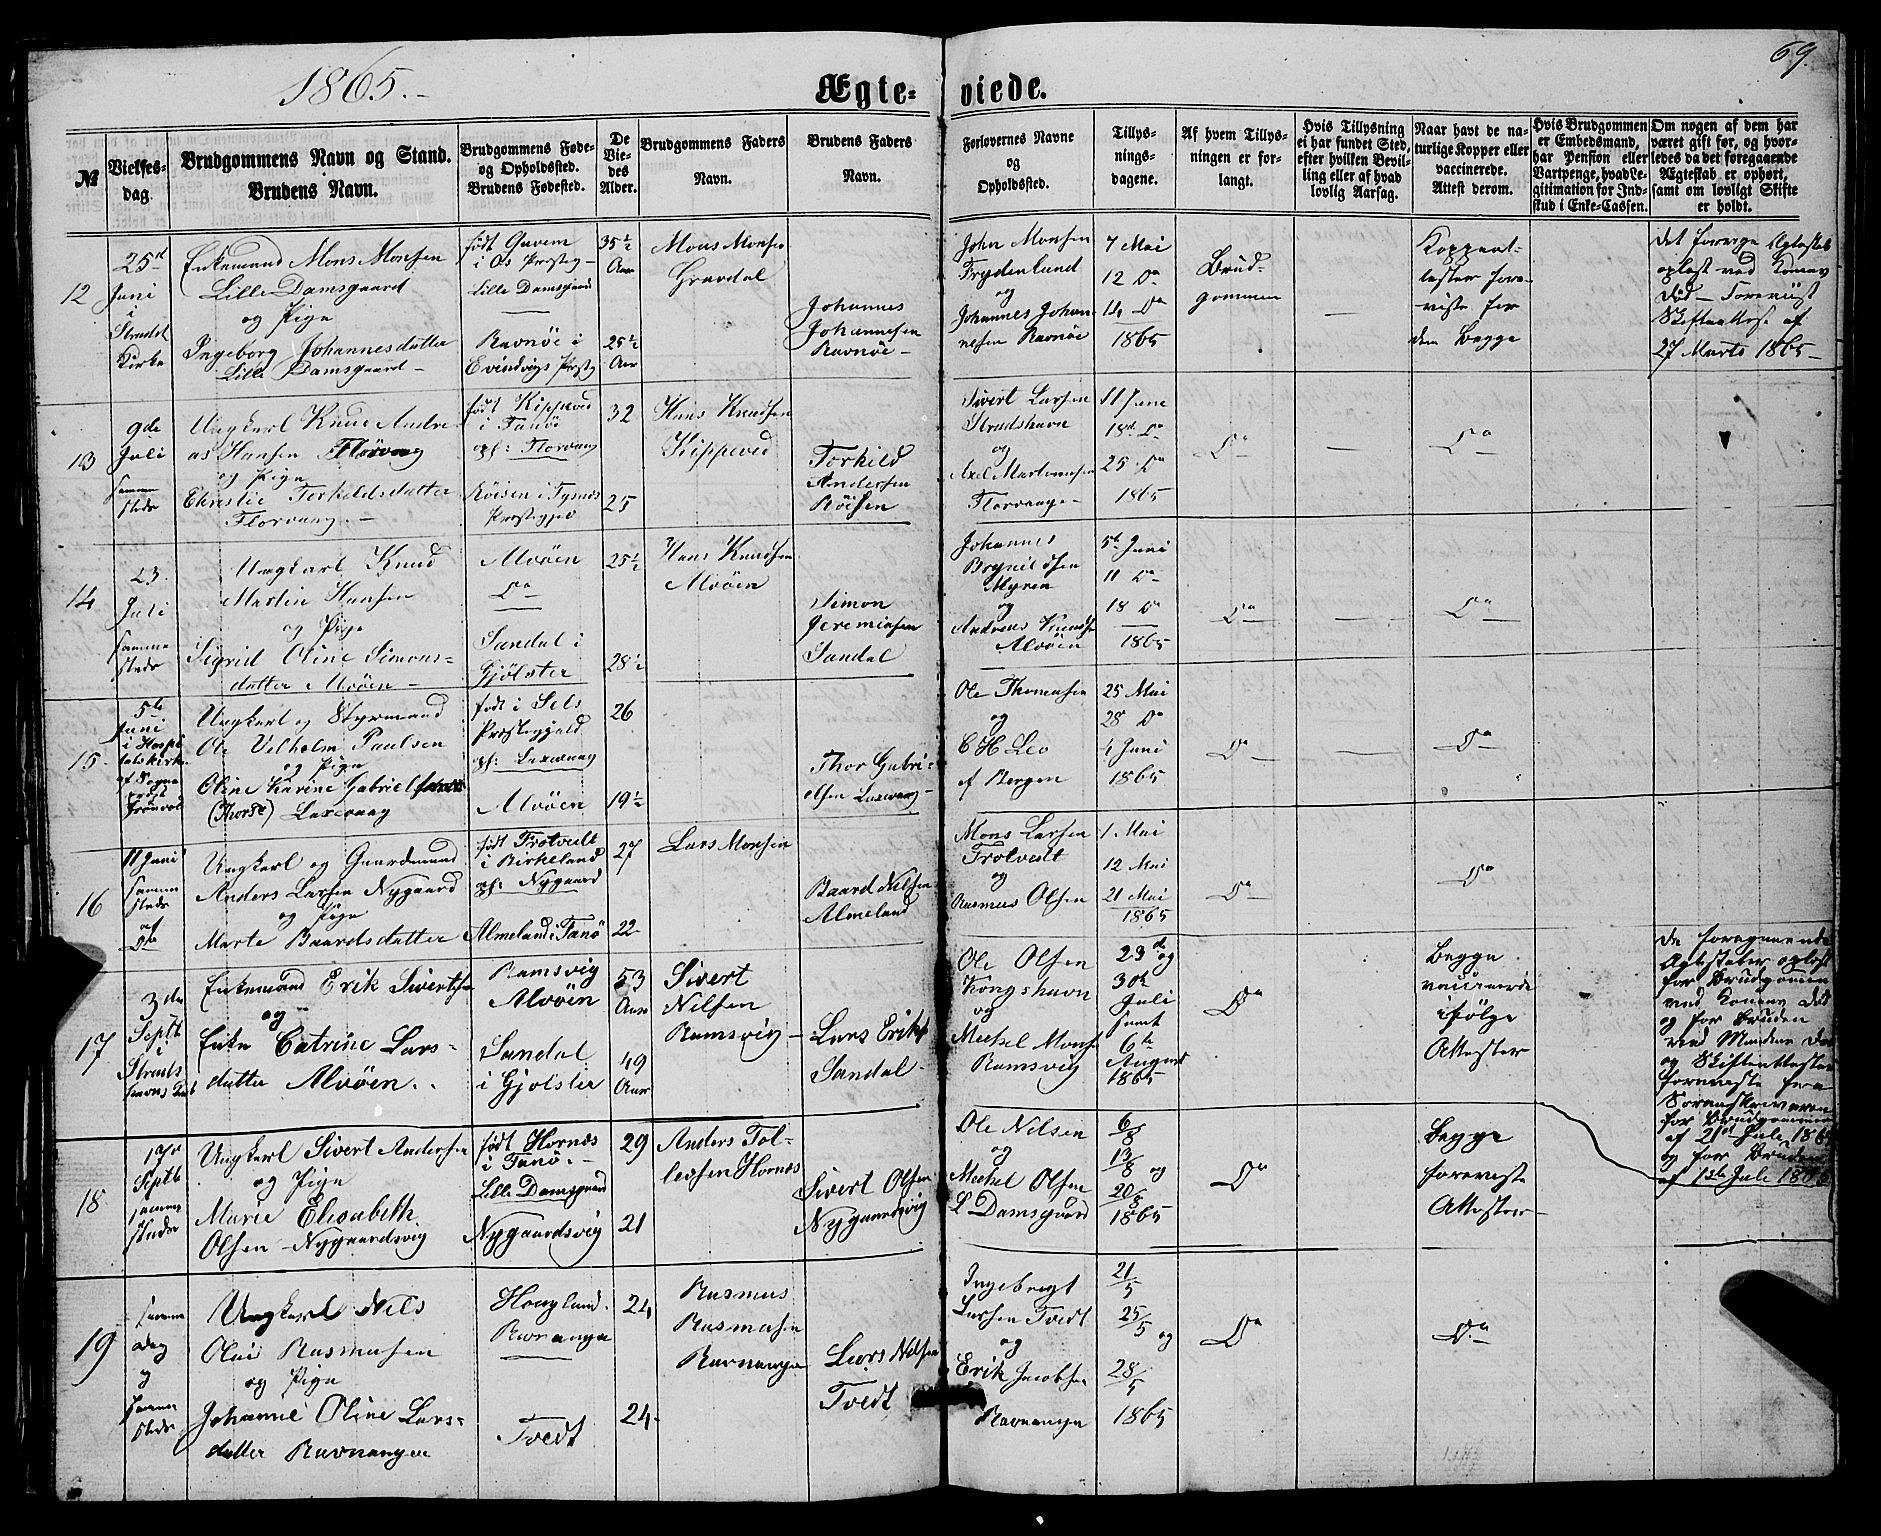 1865.-
Ægte- viede.
69.
№
Vielses-
dag.
Brudgommens Navn og Stand.
Brudens Navn.
Brudgommens Føde-
og Opholdssted.
Brudens Fødested.
De
Vie-
des
Alder.
Brudgommens Faders
Navn.
Brudens Faders
Navn.
Forlovernes Navne
og
Opholdssted.
Tillys-
nings-
dagene.
Af hvem Tillys-
ningen er for-
langt.
Hvis Tillysning
ei har fundet Sted,
efter hvilken Bevil-
ling eller af hvad
lovlig Aarsag.
Naar havt de na-
turlige Kopper eller
vaccinerede.
Attest derom.
Hvis Brudgommen
er Embedsmand,
har Pension eller
Vartpenge, hvad Le-
gitimation for Ind-
skud i Enke-Cassen.
Om nogen af dem har
været gift før, og hvor-
ledes da det foregaaende
Ægteskab er ophørt,
samt om lovligt Skifte
er holdt.
12
25de
Juni
i
Kirke
Enkemand Mons Monsen
Lille Damsgaard
og Pige
Ingeborg Johannesdatter
Lille Damsgaard-
født
i Os Præsteg-
Lille Damsgaard
Ravnøe i
Evindvigs Præsteg
35½
Aar
25½
Aar
Mons Monsen
Gravdal
Johannes
Johannesen
Ravnøe-
John Monsen
Frydenlund
og
Johannes Johan-
nessen Ravnøe
7 Mai
12 Do
14 Do
1865
Brud-
gommen
Koppeat-
tester fore-
viste for
dem Begge
det forrige Ægteskab
opløst ved Konens
Død- Foreviist
Skifteattest af
27 Marts 1865-
13
9de
Juli
samme
steds
Ungkarl Knud Andre-
as Hansen Florvaag
og Pige
Christie Torkildsdatter
Florvaag.-
født Kippevid
i Fanöe
oph: Florvaag
Röisen i Tysnæs
Præstegjeld
32
25
Hans Knudsen
Kippevid
Torkild
Andersen
Röisen
Sivert Larsen
Strudshavn
og
Axel Martinusen
Florvaage-
11 June
18de Do
25 Do
1865
Do
Do
14
23
Juli
samme
steds
Ungkarl Knud
Martin Hansen
og Pige
Sigrid Oline Simons-
datter Alvöen-
Alvöen
Do
Sandal i
Gjölster
25½
28½
Hans Knudsen
Alvöen
Simon
Jeremiasen
Sandal
Johannes
Brynildsen
Myren
og
Andreas Knudsen
Alvöen
5te Juni
11 Do
18 Do
1865
Do
Do
15
5te
Juni
i Hospi-
talskirk.
af Sogne-
præst
Ungkarl og Styrmand
Ole Vilhelm Paulsen
og Pige
Oline Karine Gabrielsdatter
(Thorse) Laxevaag
født i Sels
Præstegjeld
oph: Laxevaag
Alvöen
26
19½
Thor Gabri-
elsen Laxevaag-
Ole Thomasen
og
C H Leo
af Bergen
25 Mai
28 Do
1 Juni
1865
Do
Do
16
11 Juni
samme
steds
af
Do
Ungkarl og Gaardmand
Anders Larsen Nygaard
og Pige
Marte Baardsdatter
født Trotvedt
i Birkeland
oph: Nygaard
Almeland i Fanö
27
22
Lars Monsen
Baard Nilsen
Almeland
Mons Larsen
Trotvedt
og
Rasmus Olsen
1 Mai
12 Mai
21 Mai
1865
Do
Do
17
3die
Septb
i
Struds-
havns Kirk
Enkemand Erik Sivertsen
og
Enke Catrine Lars-
datter Alvöen..
Ramsvig
Alvöen
Sandal
i Gjölster
53
Aar
49
Aar
Sivert
Nilsen
Ramsvig-
Lars Eriks
Sandal-
Ole Olsen
Kongshavn
og
Mickel Monsen
Ramsvig
23de og
30te
Juli
samt
6te
August
1865
Do
Begge
vaccinerede
ifølge
Attester
De foregaaende
Ægteskaber opløst
for Brudgommen
ved Konens Død
og for Bruden
ved Mandens Død
og Skifteattester
foreviste fra
Sorenskriveren
for Brudgommen
af 21de Juli 1865
og for Bruden
af 1ste Juli 1865
18
17de
Septb
samme
steds
Ungkarl Sivert Andersen
og Pige
Marie Elisabeth
Olsen-Nygaardsvig
født Hornæs
i Fanö.-
Lille Damsgaard
Nygaardsvig
29
21
Anders Tol-
lefsen Hornæs
Sivert Olsen
Nygaardsvig
Ole Nilsen
og
Mickel Olsen
L Damsgaard
6/8
13/8 og
20/8
1865
Do
Begge
foreviste
Attester-
19
samme
Dag
og
samme
steds
Ungkarl Nils
Olai Rasmusen
og Pige
Johanne Oline Lars-
datter Ravnanger
Haugland.
Ravnanger
Tvedt
24
24-
Rasmus
Rasmusen
Ravnanger
Lars Nilsen
Tvedt
Ingebregt
Larsen Tvedt
og
Erik Jacobsen
Ravnanger
21/5
25/5 og
28/5
1865
Do
Do